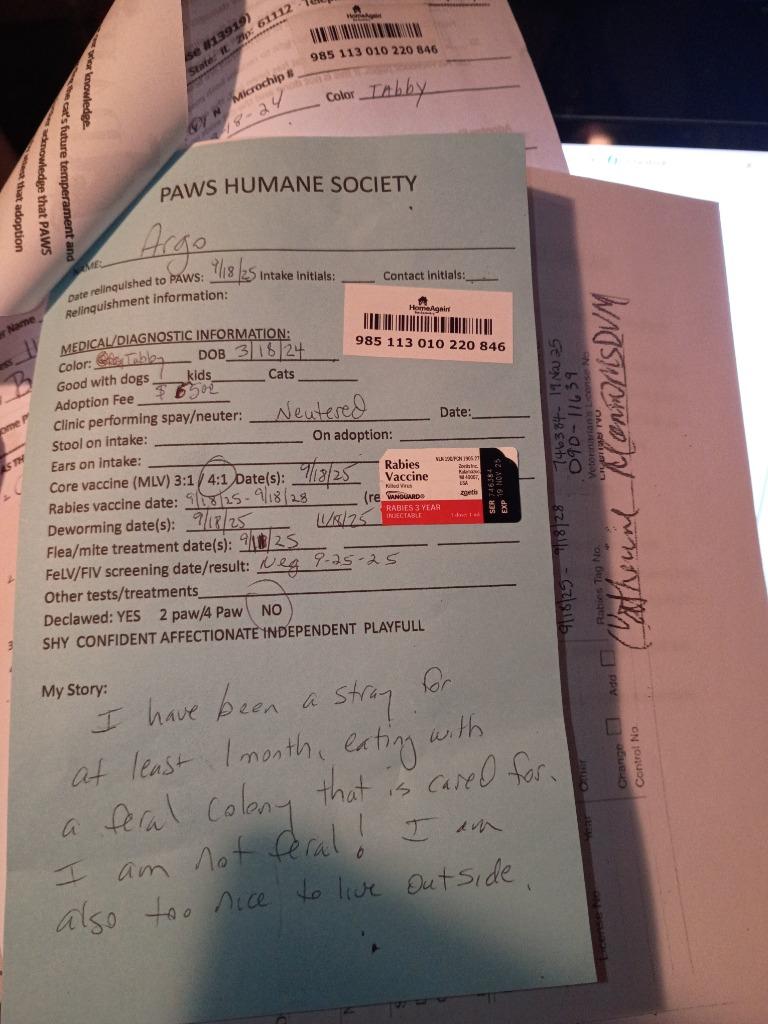 se #13919)
State: IL Zip: 61112
HomeAgain
985 113 010 220 846
Microchip #
Y N
18-24 Color Tabby
r prior knowledge.
the cat's future temperament and
acknowledge that PAWS
that adoption
PAWS HUMANE SOCIETY
NAME: Argo
Date relinquished to PAWS: 9/18/25 Intake initials: Contact initials:
Relinquishment information:
HomeAgain
985 113 010 220 846
MEDICAL/DIAGNOSTIC INFORMATION:
Color: Tabby DOB 3/18/24
Good with dogs kids Cats
Adoption Fee $
Clinic performing spay/neuter: Neutered Date:
Stool on intake: On adoption:
Ears on intake:
Core vaccine (MLV) 3:1 / 4:1 Date(s): 9/18/25
Rabies vaccine date: 9/18/25-9/18/28 (re
Deworming date(s): 9/18/25 11/8/25
Flea/mite treatment date(s):
FeLV/FIV screening date/result: Neg 9-25-25
Other tests/treatments
Declawed: YES 2 paw/4 Paw NO
SHY CONFIDENT AFFECTIONATE INDEPENDENT PLAYFULL
Rabies
Vaccine
Killed Virus
VANGUARD®
RABIES 3 YEAR
INJECTABLE
Zoetis Inc.
Kalamazoo,
MI 49007,
USA
zoetis
SER 746384
EXP 19 NOV 25
My Story:
I have been a stray for
at least 1 month, eating with
a feral colony that is cared for.
I am not feral! I am
also too nice to live outside.
9/18/25 - 9/18/28 746384- 19 Nov 25
090-11639
Rabies Tag No.
Catherine
Change Add
Control No.
License No Year Other